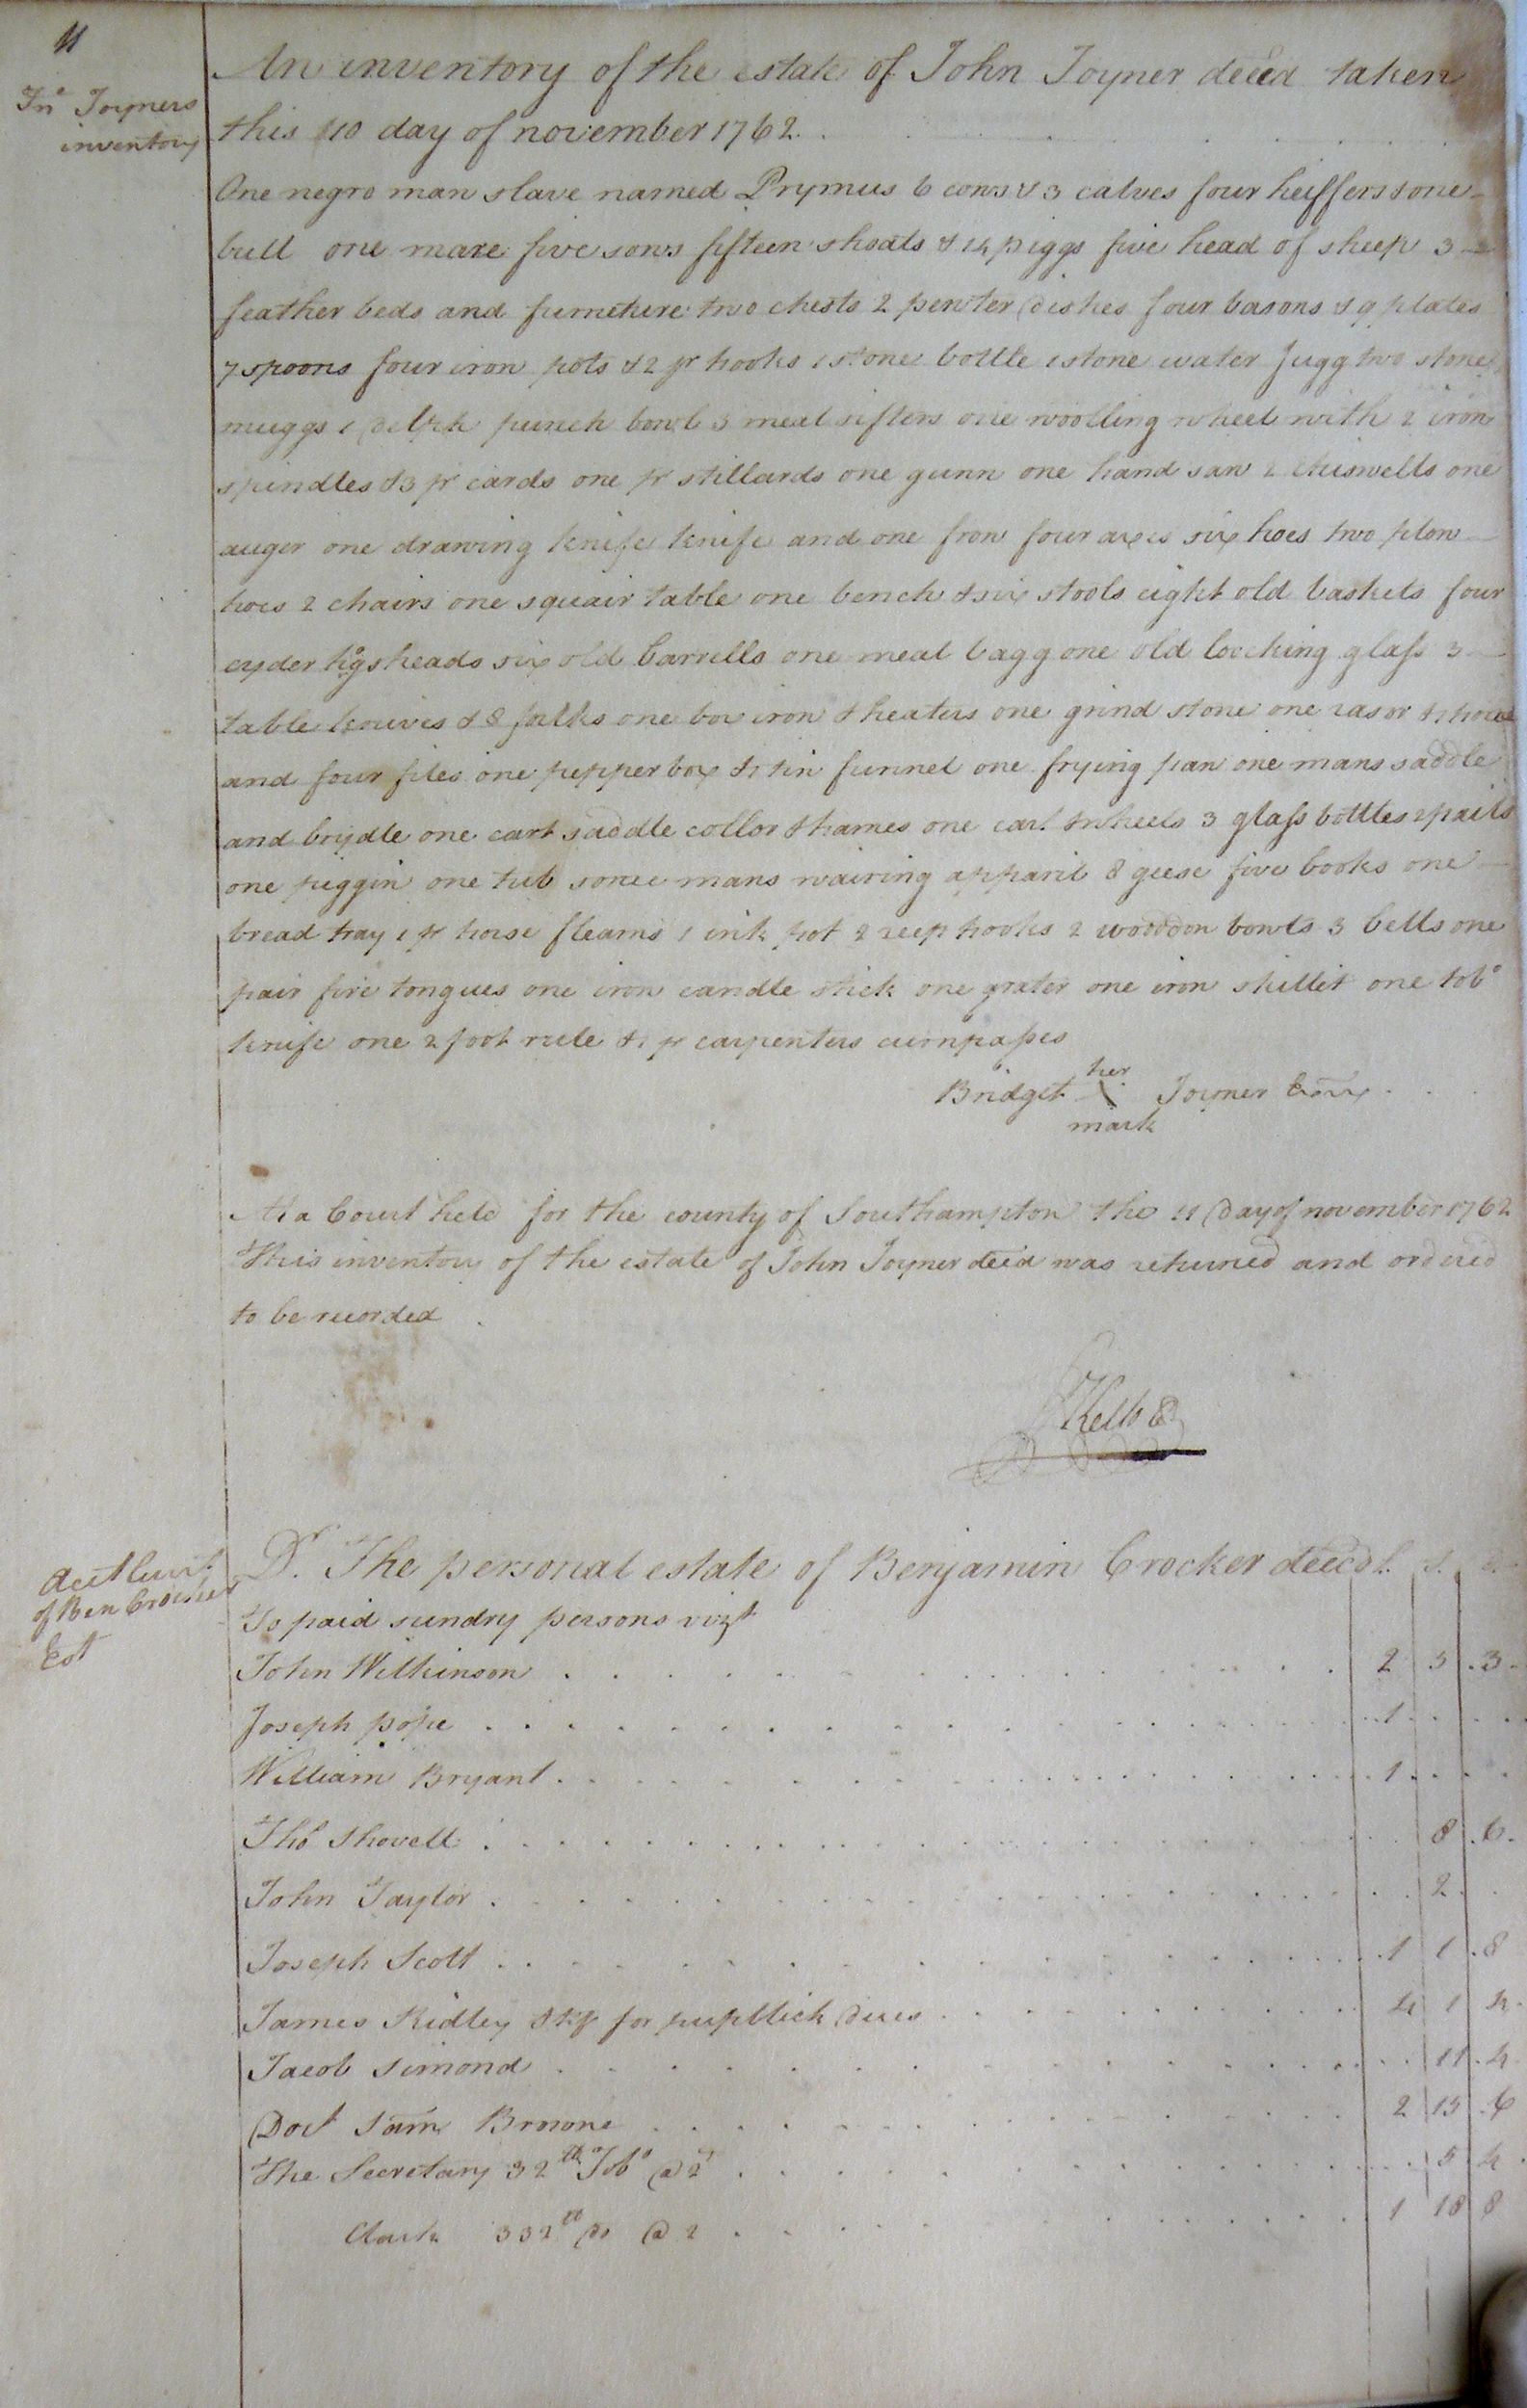 11
Jno Joyners
inventory
An inventory of the estate of John Joyner deced taken
this 10 day of november 1762
One negro man slave named Prymus 6 cows & 3 calves four heiffers & one
bull one mare five sows fifteen shoats & 14 piggs five head of sheep 3
feather beds and furneture two chests 2 pewter dishes four basons & 9 plates
7 spoons four iron pots & 2 pr hooks 1 stone bottle 1 stone water Jugg two stone
muggs 1 delph punch bowl 3 meal sifters one woolling wheel with 2 iron
spindles & 3 pr cards one pr stillards one gunn one hand saw 2 chiswells one
auger one drawing knife knife and one frow four axes six hoes two plow
hoes 2 chairs one squair table one bench & six stools eight old baskets four
cyder hogsheads six old barrells one meal bagg one old loocking glass 3
table knives & 8 forks one box iron & heaters one grind stone one rasor & 1 hone
and four files one pepper box & 1 tin funnel one frying pan one mans saddle
and brydle one cart saddle collor & hames one cart & wheels 3 glass bottles 2 pails
one piggin one tub some mans wairing apparil 8 geese five books one
bread tray 1 pr horse fleams 1 ink pot 2 reep hooks 2 woodden bowls 3 bells one
pair fire tongues one iron candle stick one grater one iron skillit one tobo
knife one 2 foot rule & 1 pr carpenters cumpasses
her
Bridget Joyner Exrx
mark
At a Court held for the county of Southampton the 11 day of november 1762
This inventory of the estate of John Joyner deced was returned and ordered
to be recorded
Kello
Acct Curt
of Ben Crocker
Est
Dr. The personal estate of Benjamin Crocker deced L. S. D.
To paid sundry persons vizt
John Wilkinson 2 5 3
Joseph pope 1
William Bryant 1
Thos Shovell 8 6
John Taylor 2
Joseph Scott 1 1 8
James Ridley for pupblick dues 4 1 4
Jacob Simond 11 4
Doct Sam Browne 2 15 6
The Secretary 32 lb Tobo @ 2d 5 4
Clark 332 lb do @ 2 1 18 8